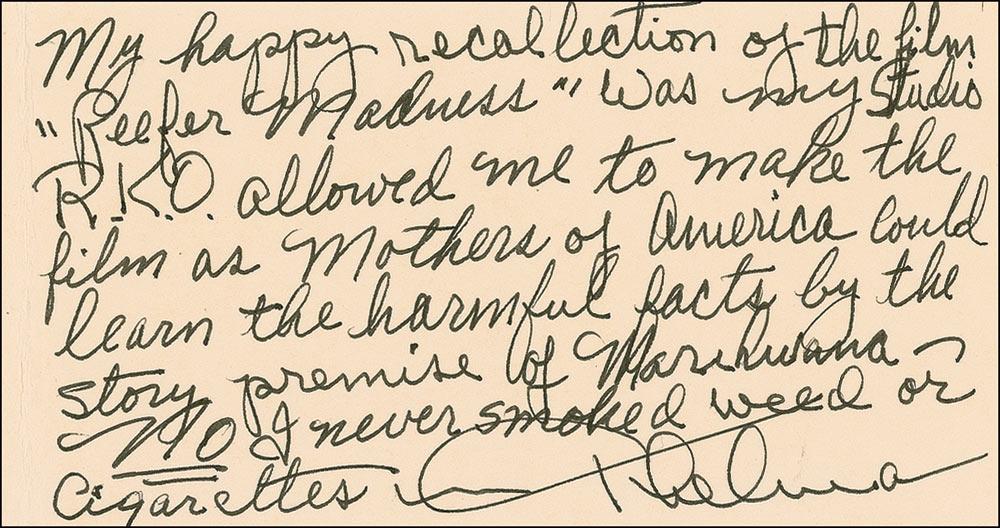 My happy recollection of the film
"Reefer Madness" Was my Studio
R.K.O. allowed me to make the
film as Mothers of America Could
learn the harmful facts by the
story premise of Marihuana
NO I never smoked weed or
Cigarettes Thelma